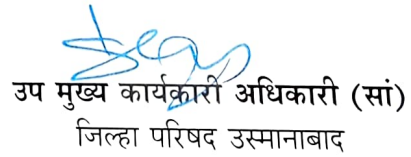 उप मुख्य कार्यकारी अधिकारी (सां)
जिल्हा परिषद उस्मानाबाद